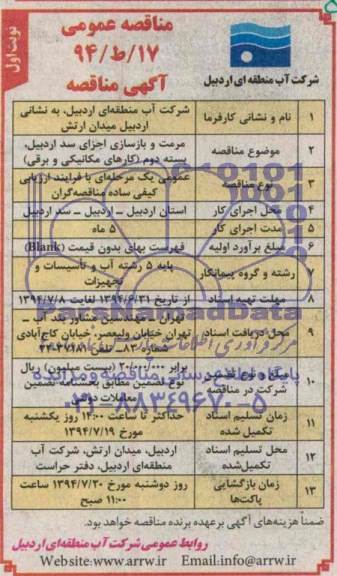 نوبت اول
مناقصه عمومی
۱۷/ط/۹۴
آگهی مناقصه
شرکت آب منطقه‌ای اردبیل
۱ نام و نشانی کارفرما شرکت آب منطقه‌ای اردبیل، به نشانی
اردبیل میدان ارتش
۲ موضوع مناقصه مرمت و بازسازی اجزای سد اردبیل،
بسته دوم (کارهای مکانیکی و برقی)
۳ نوع مناقصه عمومی یک مرحله‌ای با فرایند ارزیابی
کیفی ساده مناقصه‌گران
۴ محل اجرای کار استان اردبیل ـ اردبیل ـ سد اردبیل
۵ مدت اجرای کار ۵ ماه
۶ مبلغ برآورد اولیه فهرست بهای بدون قیمت (Blank)
۷ رشته و گروه پیمانکار پایه ۵ رشته آب و تأسیسات و
تجهیزات
۸ مهلت تهیه اسناد از تاریخ ۱۳۹۴/۶/۳۱ لغایت ۱۳۹۴/۷/۸
۹ محل دریافت اسناد تهران ـ مهندسین مشاور بند آب ـ
تهران خیابان ولیعصر، خیابان کاج‌آبادی
شماره ۸۳ـ تلفن
۱۰ مبلغ و نوع تضمین
شرکت در مناقصه برابر ۲۰/۰۰۰/۰۰۰ (بیست میلیون) ریال
نوع تضمین مطابق بخشنامه تضمین
معاملات دولتی
۱۱ زمان تسلیم اسناد
تکمیل شده حداکثر تا ساعت ۱۴:۰۰ روز یکشنبه
مورخ ۱۳۹۴/۷/۱۹
۱۲ محل تسلیم اسناد
تکمیل‌شده اردبیل، میدان ارتش، شرکت آب
منطقه‌ای اردبیل، دفتر حراست
۱۳ زمان بازگشایی
پاکت‌ها روز دوشنبه مورخ ۱۳۹۴/۷/۲۰ ساعت
۱۱:۰۰ صبح
ضمناً هزینه‌های آگهی بر عهده برنده مناقصه خواهد بود.
روابط عمومی شرکت آب منطقه‌ای اردبیل
Website:www.arrw.ir Email:info@arrw.ir
۰۲۱-۸۸۳۴۹۶۷۰-۵